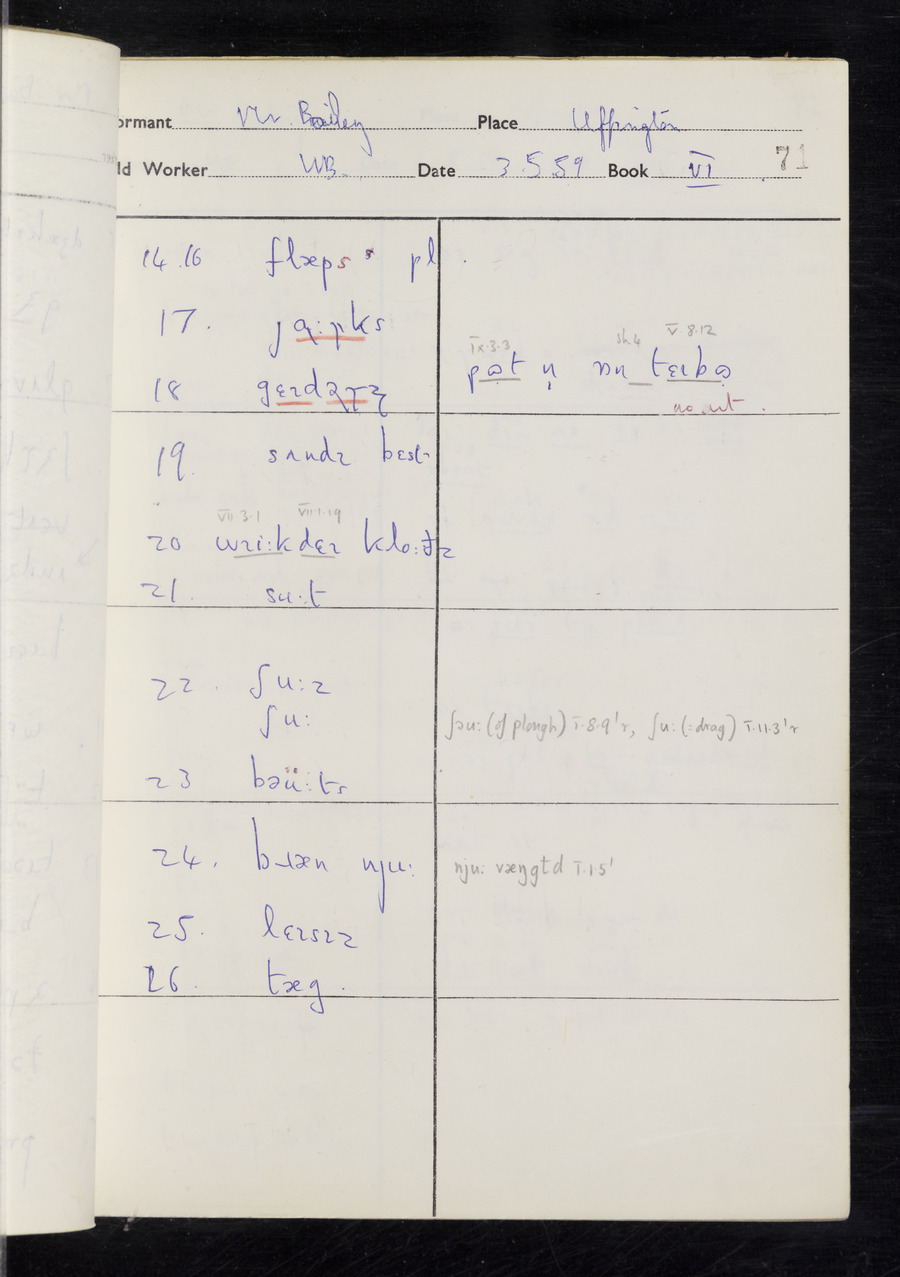 ormant Mr. Bailey Place Uffington
ld Worker WB. Date 3.5.59 Book VI 71
14.16 flæps pl.
17. jɑ:ɲks
IX.3.3 sh4 V.8.12
18 pɒt
no art.
19. sʌndɪ bɛst
VII.3.1 VII.1.19
20 wɪi:k dɛɪ klo:ðz
21. su·t
22. ʃu:z
ʃu:
ʃəu: (of plough) I.8.9'r, ʃu: (=drag) I.11.3'r
23 bəü:ts
24. nju:
nju: væŋgtd I.1.5'
25. lɛɪsɪz
26. tæg.